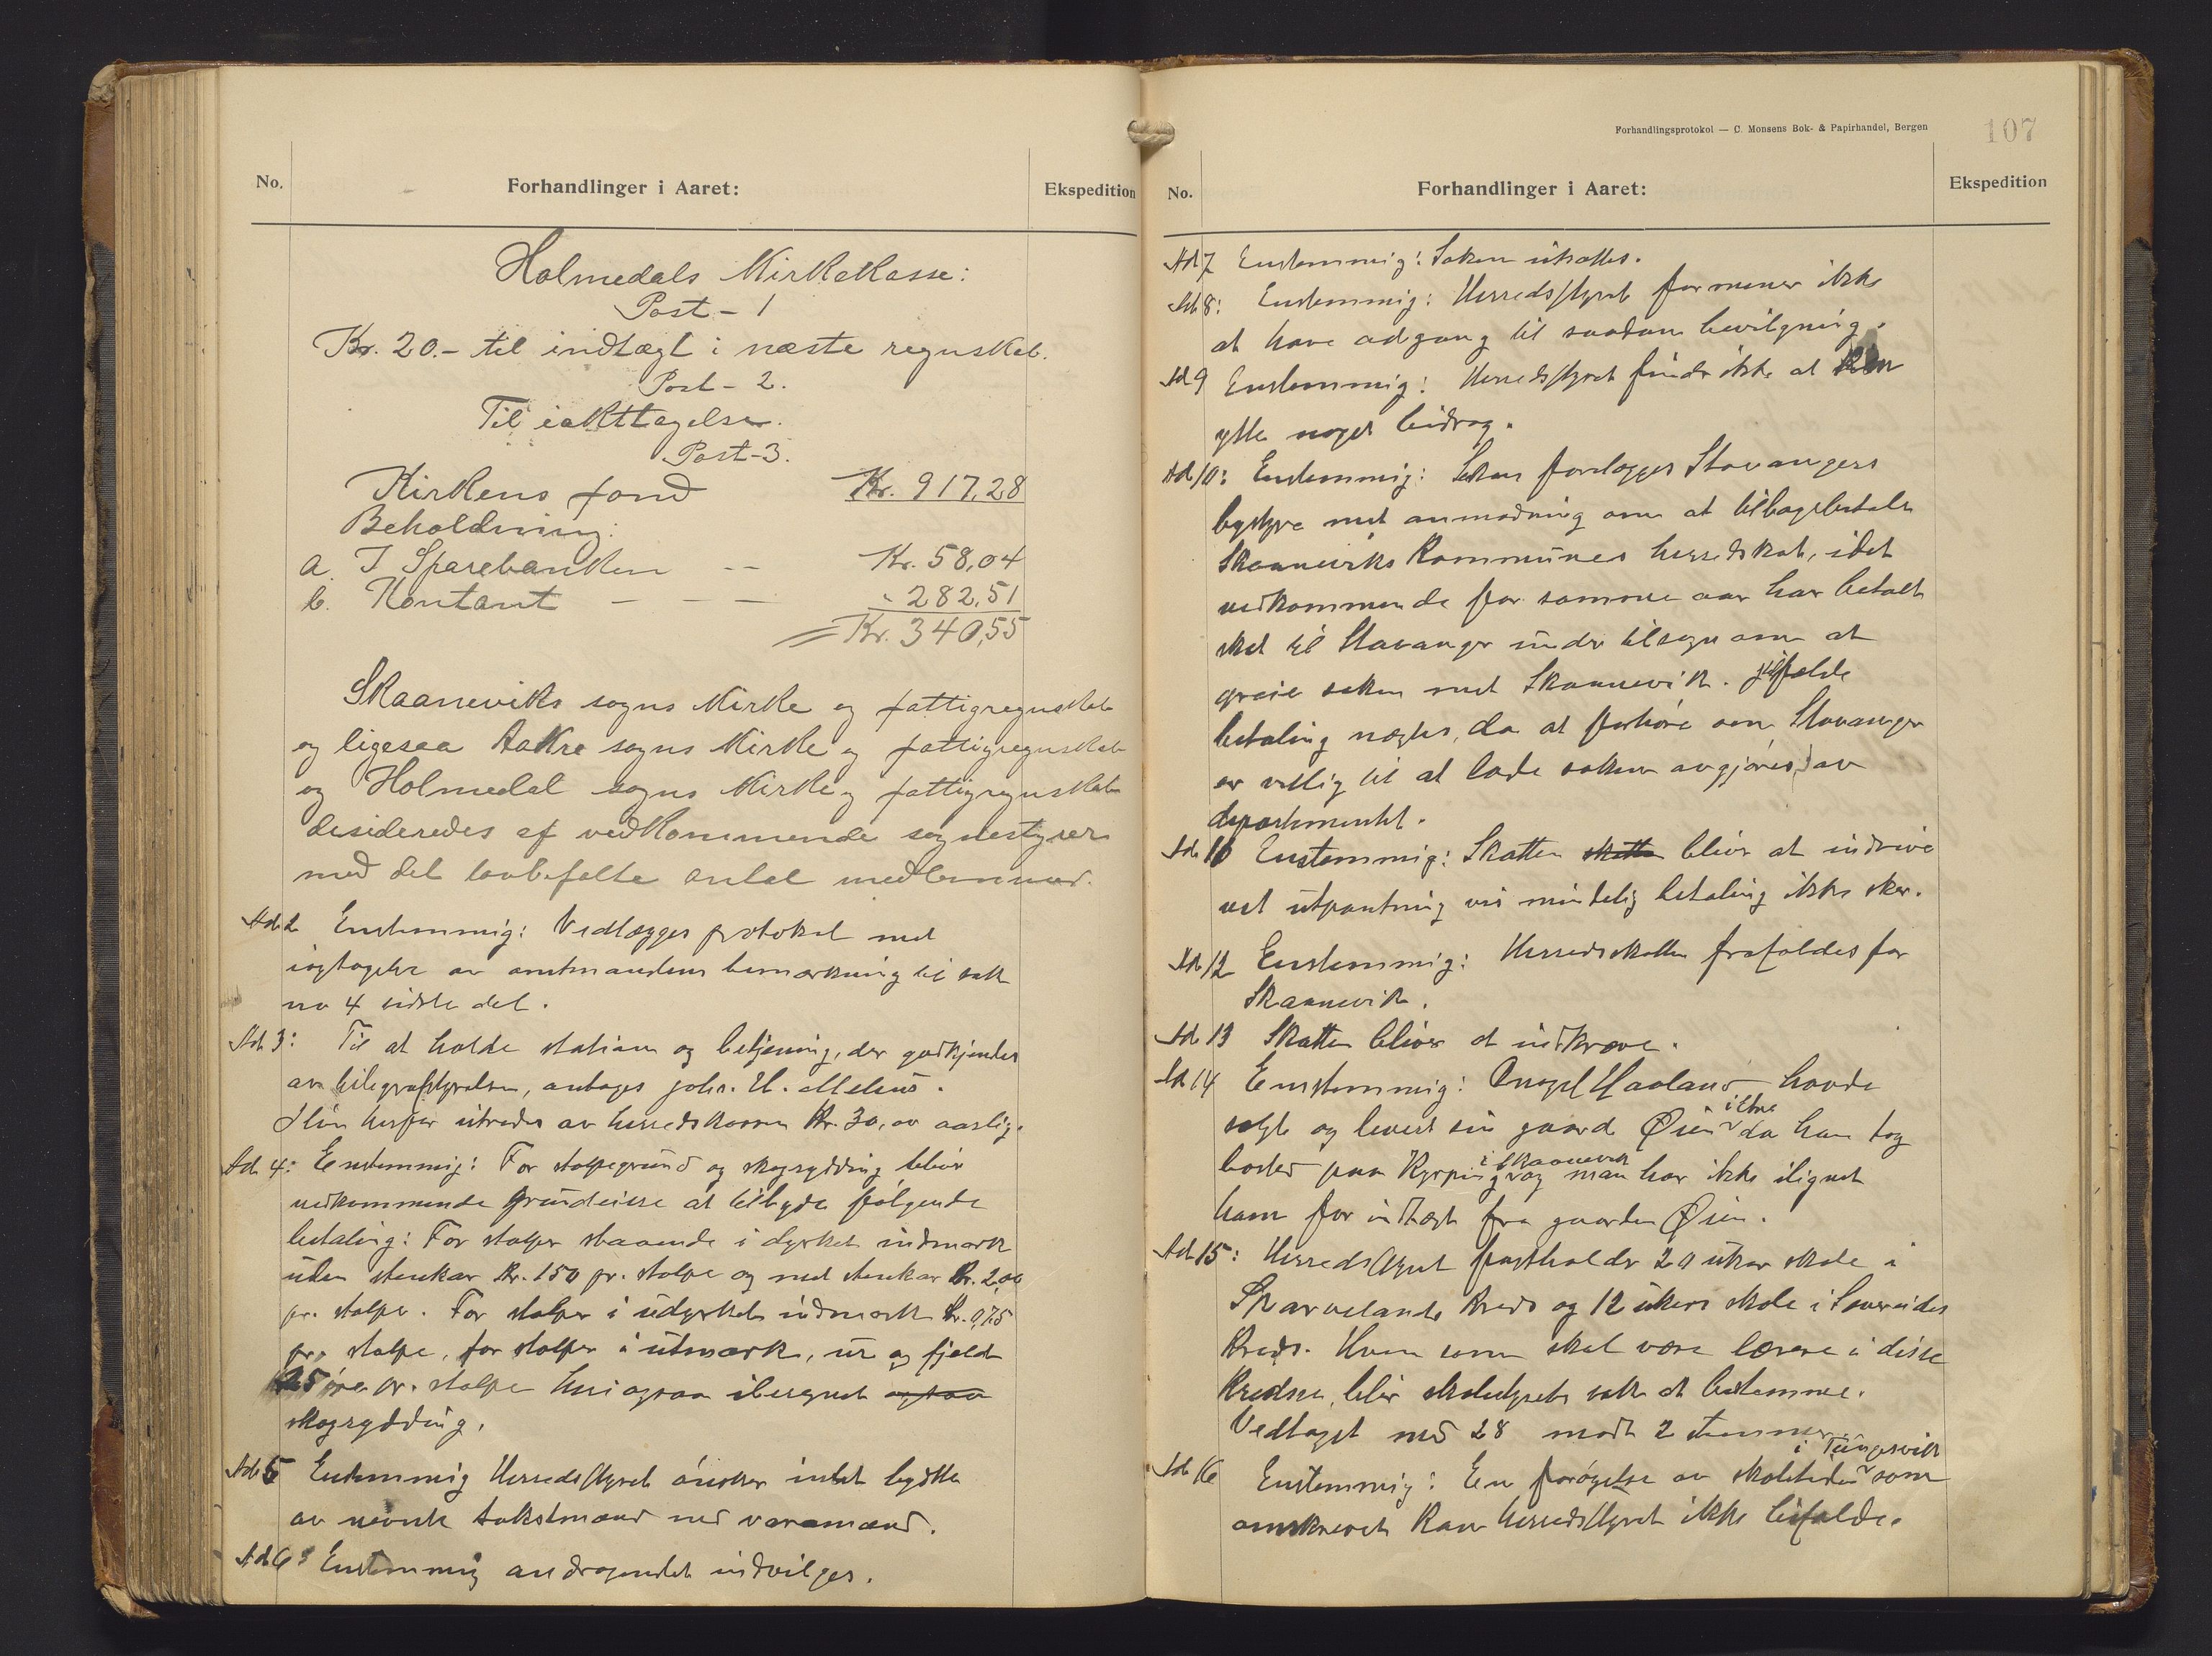 No.
Forhandlinger i Aaret:
Ekspedition
Holmedals Kirkekasse:
Post - 1
Kr. 20.- til indtægt i næste regnskab.
Post - 2.
Til iakttagelse.
Post - 3.
Kirkens fond Kr. 917,28
Beholdning:
a. I Sparebanken -- Kr. 58,04
b. Kontant - - - " 282,51
= Kr. 340,55
Skaaneviks sogns Kirke og fattigregnskab
og ligesaa Aakre sogns Kirke og fattigregnskab
og Holmedal sogns Kirke og fattigregnskab
desideredes af vedkommende sognestyrer
med det lovbefalte antal medlemmer.
Ad 2 Enstemmig: Vedlægges protokol med
iagtagelse av amtmandens bemærkning til sak
no 4 sidste del.
Ad 3: Til at holde station og betjening, der godkjendes
av telegrafstyrelsen, antages Johs. H. Melius.
Husleie utredes av herredskassen Kr. 30,00 aarlig.
Ad 4: Enstemmig: For stolpegrund og skogrydding blir
vedkommende grundeiere at tilbyde følgende
betaling: For stolper staaende i dyrket indmark
uten stenkar Kr. 1,50 pr. stolpe og med stenkar Kr. 2,00
pr. stolpe. For stolper i udyrket indmark Kr. 0,75
pr. stolpe, for stolper i utmark, ur og fjeld
25 øre pr. stolpe heri ogsaa iberegnet ogsaa
skogrydding.
Ad 5 Enstemmig Herredsstyret ønsker intet bytte
av nævnte takstmænd med varamænd.
Ad 6: Enstemmig andragendet indvilges.
Forhandlingsprotokol — C. Monsens Bok- & Papirhandel, Bergen
107
No.
Forhandlinger i Aaret:
Ekspedition
Ad 7 Enstemmig: Saken utsættes.
Ad 8: Enstemmig: Herredsstyret formener ikke
at have adgang til saadan bevilgning.
Ad 9 Enstemmig: Herredsstyret finder ikke at kan
ytte noget bidrag.
Ad 10: Enstemmig: Saken forelægges Stavangers
bystyre med anmodning om at tilbagebetale
Skaaneviks Kommunes herredskat, idet
vedkommende for samme aar har betalt
skat til Stavanger under tilsagn om at
greie saken med Skaanevik. I tilfælde
betaling nægtes, da at forhøre om Stavanger
er villig til at lade saken avgjøres av
departementet.
Ad 11 Enstemmig: Skatten skatten bliver at inddrive
ved utpantning vis mindelig betaling ikke sker.
Ad 12 Enstemmig: Herredsskatten frafaldes for
Skaanevik.
Ad 13 Skatten bliver at indkræve.
Ad 14 Enstemmig: Haaland havde
i Etne
solgt og levert sin gaard Øien da han tog
i Skaanevik
bosted paa Kyrping og man har ikke ilignet
ham for indtægt fra gaarden Øien.
Ad 15: Herredsstyret fastholder 20 uker skole i
Skarvelands Kreds og 12 ukers skole i
Kreds. Hvem som skal være lærere i disse
Kredse, blir skolestyrets sak at bestemme.
Vedtaget med 28 mot 2 stemmer.
i Tungesvik
Ad 16 Enstemmig: En forøgelse av skoletiden som
omskrevet kan herredsstyret ikke bifalde.